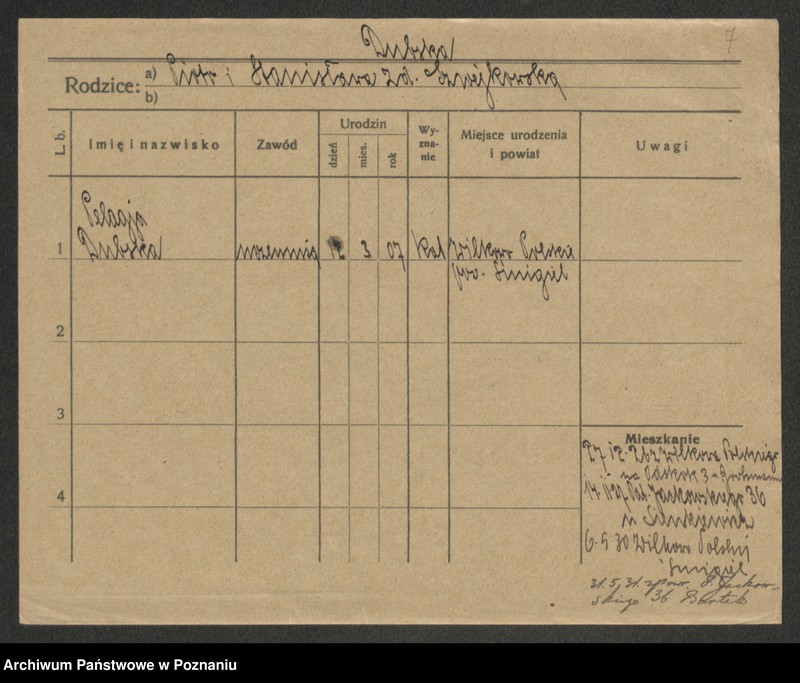 7
Dubska
Rodzice: a) Piotr i Stanisława zd. Szwejkowska
b)
L. b.
Imię i nazwisko
Zawód
Urodzin
dzień
mies.
rok
Wy-
zna-
nie
Miejsce urodzenia
i powiat
Uwagi
Pelagja
1 Dubska 12 3 07 Kat Wilkowo Polskie
pow. Śmigiel
2
3
4
Mieszkanie
27.12.26 z Wilkowa Polskiego
na 3
36
u
6.5.30 Wilkowo Polskie
Śmigiel
31.5.31. z pow. P. Jackow-
skiego 36 Bartek
Archiwum Państwowe w Poznaniu